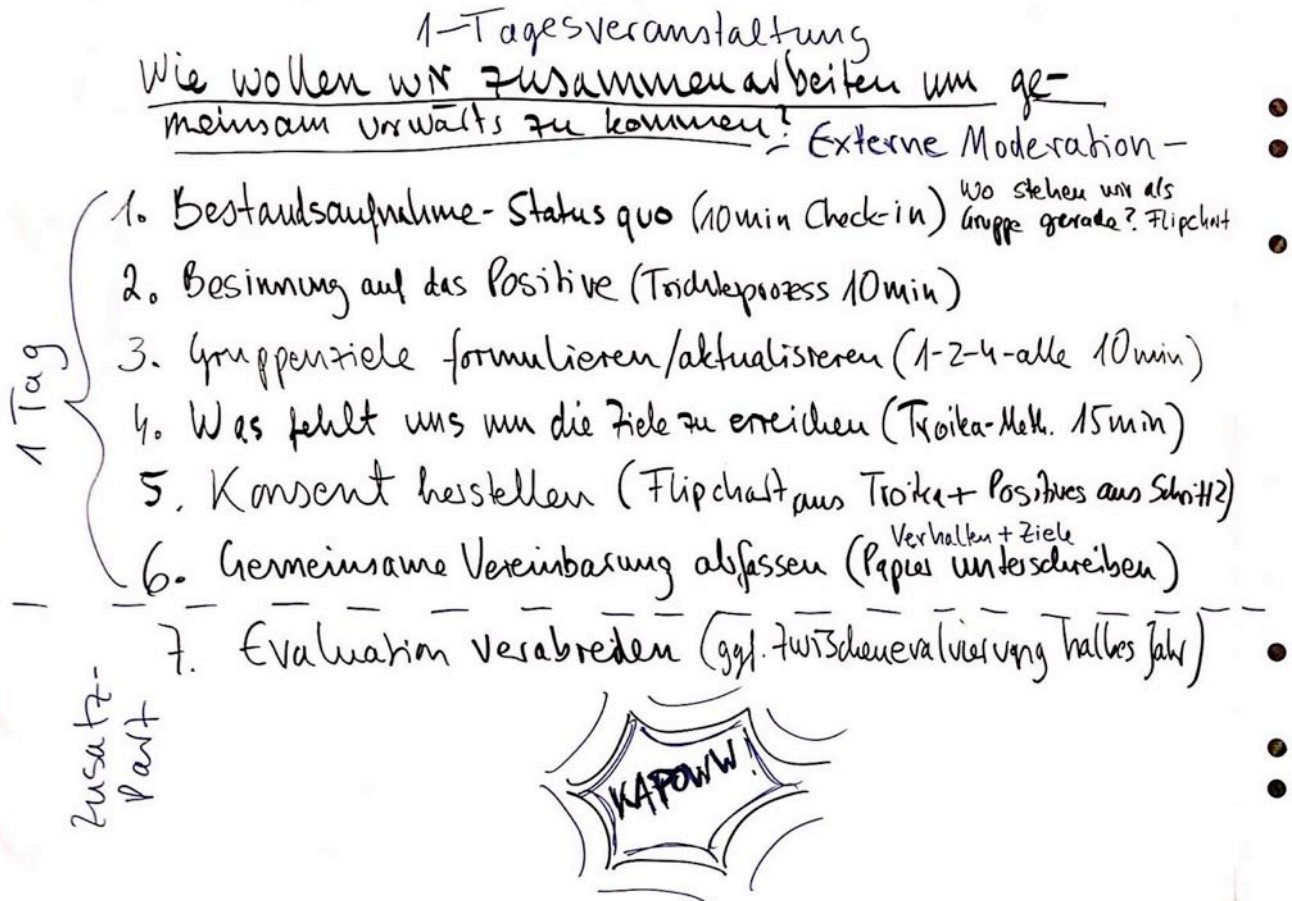 1-Tagesveranstaltung
Wie wollen wir zusammenarbeiten um ge-
meinsam vorwärts zu kommen?
- Externe Moderation -
1. Bestandsaufnahme - Status quo (10 min Check-in) Wo stehen wir als
Gruppe gerade? Flipchart
2. Besinnung auf das Positive (Trichterprozess 10 min)
3. Gruppenziele formulieren/aktualisieren (1-2-4-alle 10 min)
4. Was fehlt uns um die Ziele zu erreichen (Troika-Meth. 15 min)
5. Konsent herstellen (Flipchart aus Troika + Positives aus Schritt 2)
Verhalten + Ziele
6. Gemeinsame Vereinbarung abfassen (Papier unterschreiben)
1 Tag
7. Evaluation verabreden (ggf. Zwischenevaluierung halbes Jahr)
Zusatz-
Part
KAPOWW!